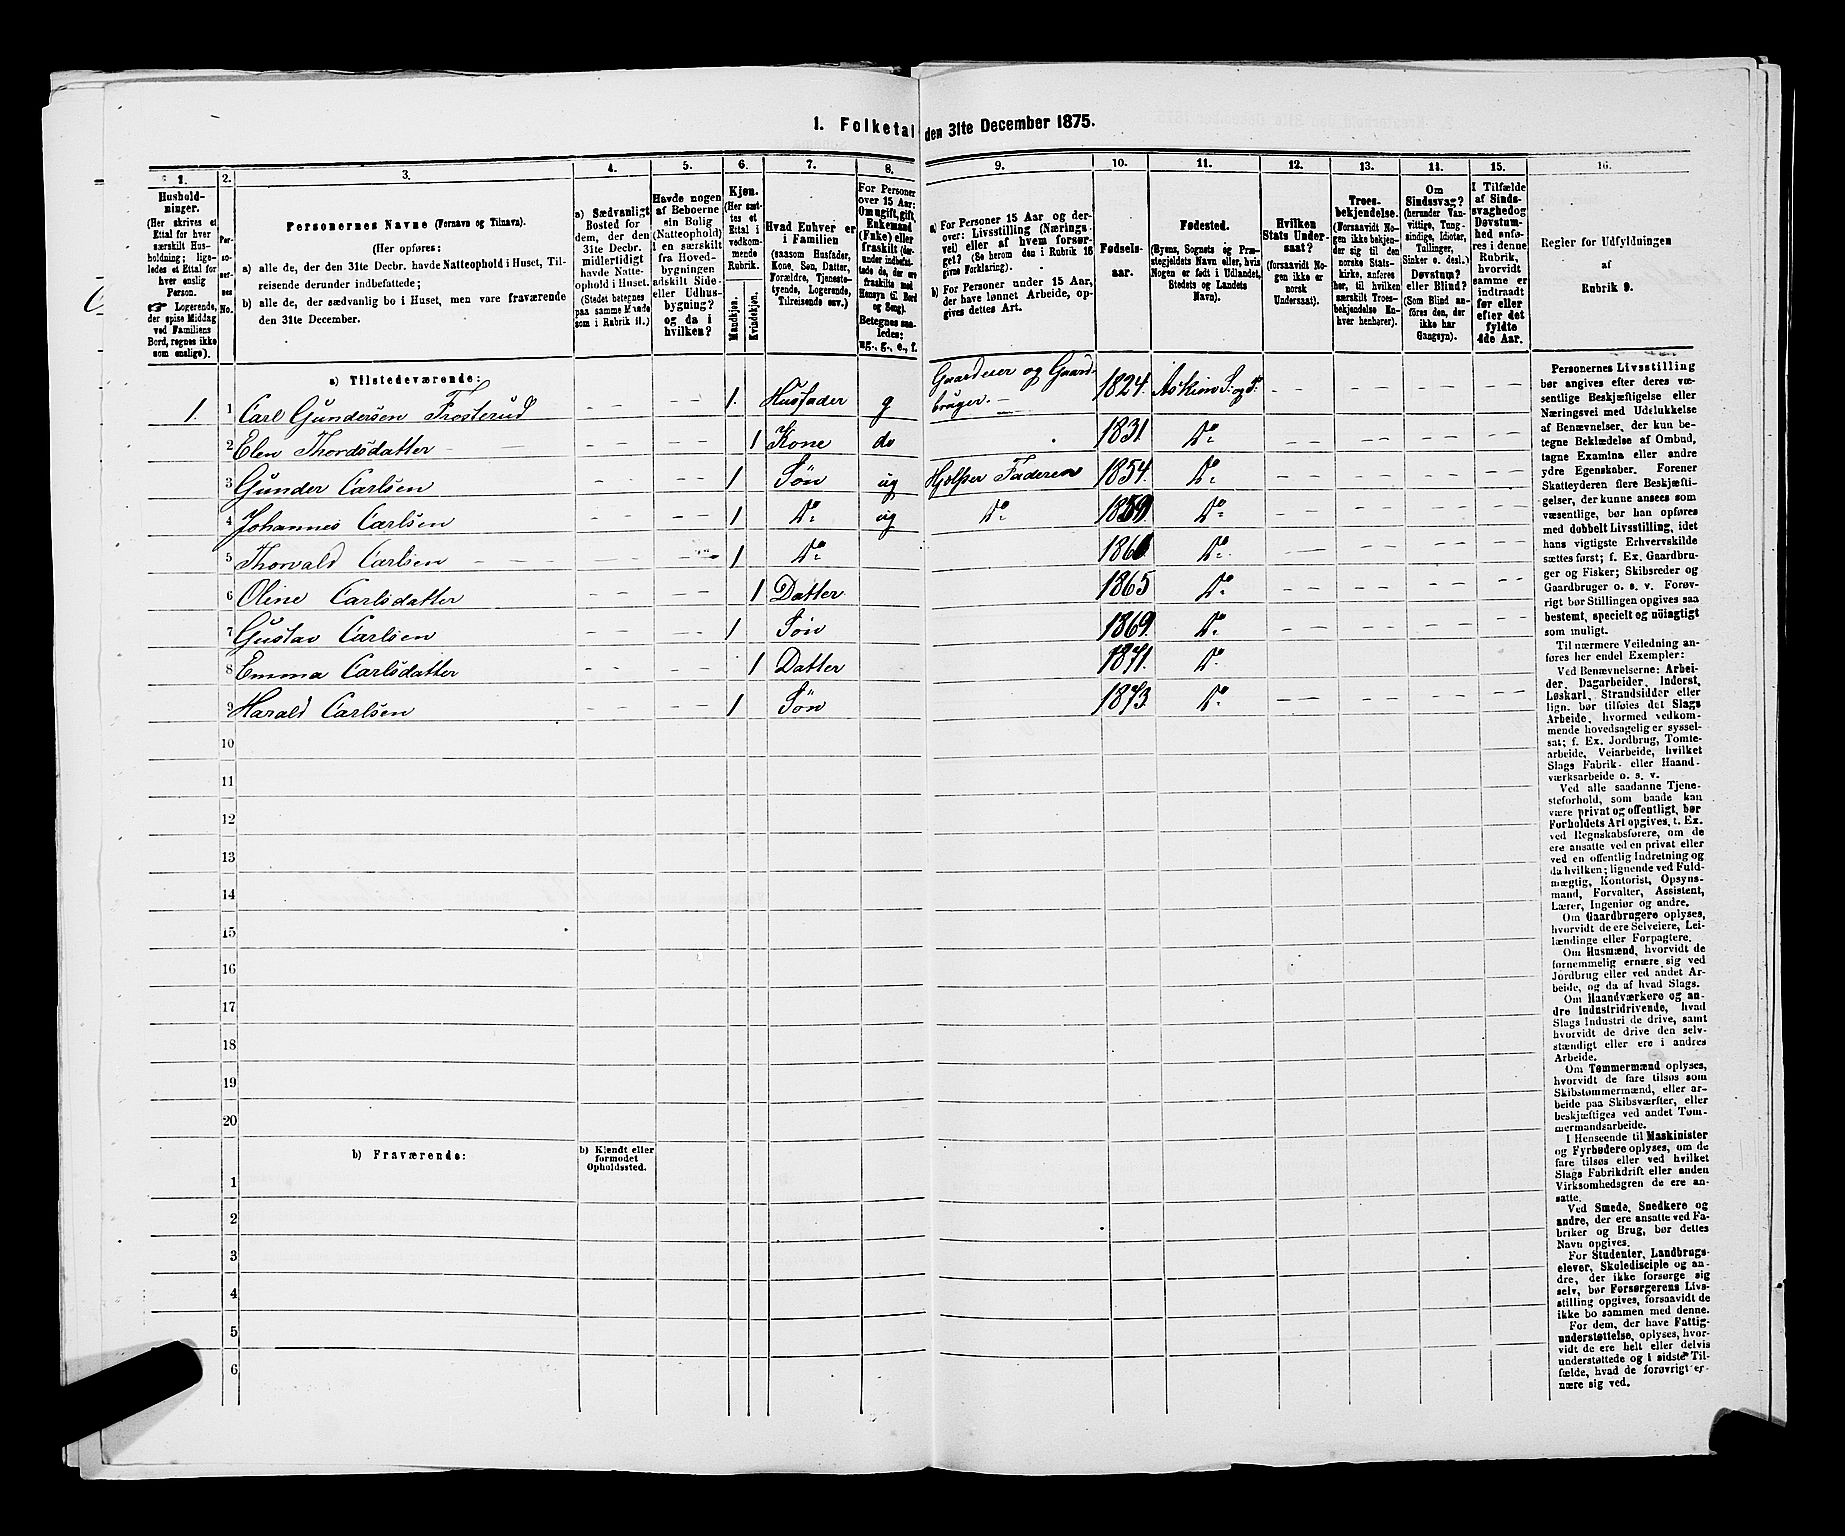 1. Folketal den 31te December 1875.
1.
Hushold-
ninger.
(Her skrives et
Ettal for hver
særskilt Hus-
holdning; lige-
ledes et Ettal for
hver enslig
Person.
☞ Logerende,
der spise Middag
ved Familiens
Bord, regnes ikke
som enslige).
2.
Per-
so-
ner-
nes
No.
3.
Personernes Navne (Fornavn og Tilnavn).
(Her opføres:
a) alle de, der den 31te Decbr. havde Natteophold i Huset, Til-
reisende derunder indbefattede;
b) alle de, der sædvanlig bo i Huset, men vare fraværende
den 31te December.
4.
a) Sædvanligt
Bosted for
dem, der den
31te Decbr.
midlertidigt
havde Natte-
ophold i Huset.
(Stedet betegnes
paa samme Maade
som i Rubrik 11.)
5.
Havde nogen
af Beboerne
sin Bolig
(Natteophold)
i en særskilt
fra Hoved-
bygningen
adskilt Side-
eller Udhus-
bygning?
og da i
hvilken?
6.
Kjøn.
(Her sæt-
tes et
Ettal i
vedkom-
mende
Rubrik.
Mandkjøn.
Kvindekjøn.
7.
Hvad Enhver er
i Familien
(saasom Husfader,
Kone, Søn, Datter,
Forældre, Tjeneste-
tyende, Logerende,
Tilreisende osv.)
8.
For Personer
over 15 Aar:
Om ugift, gift,
Enkemand
(Enke) eller
fraskilt (der-
under indbefat-
tede de, der ere
fraskilte med
Hensyn til Bord
og Seng).
Betegnes saa-
ledes:
ug., g., e., f.
9.
a) For Personer 15 Aar og der-
over: Livsstilling (Nærings-
vei) eller af hvem forsør-
get? (Se herom den i Rubrik 16
givne Forklaring).
b) For Personer under 15 Aar,
der have lønnet Arbeide, op-
gives dettes Art.
10.
Fødsels-
aar.
11.
Fødested.
(Byens, Sognets og Præ-
stegjeldets Navn eller, hvis
Nogen er født i Udlandet,
Stedets og Landets
Navn).
12.
Hvilken
Stats Under-
saat?
(forsaavidt No-
gen ikke er
norsk
Undersaat).
13.
Troes-
bekjendelse.
(Forsaavidt No-
gen ikke bekjen-
der sig til den
norske Stats-
kirke, anføres
her, til hvilken
særskilt Troes-
bekjendelse En-
hver henhører).
14.
Om
Sindssvag?
(herunder Van-
vittige, Tung-
sindige, Idioter,
Tullinger,
Sinker o. desl.)
Døvstum?
eller Blind?
(Som Blind an-
føres den, der
ikke har
Gangsyn).
15.
I Tilfælde
af Sinds-
svaghed og
Døvstum-
hed anfø-
res i denne
Rubrik,
hvorvidt
samme er
indtraadt
før eller
efter det
fyldte
4de Aar.
16.
Regler for Udfyldningen
af
Rubrik 9.
a) Tilstedeværende:
1 1 Carl Gundersen Frosterud - - 1. Husfader g Gaardeier og Gaard-
bruger. 1824. Askim S. og P. - -
2 Elen Thordsdatter - - 1 Kone do 1831 Do - -
3 Gunder Carlsen - - 1 Søn ug Hjælper Faderen 1854. Do - -
4 Johannes Carlsen - - 1 Do ug Do 1859. Do - -
5 Thorvald Carlsen - - 1 Do Do - -
6 Oline Carlsdatter - - 1 Datter 1865 Do - -
7 Gustav Carlsen - - 1 Søn 1869. Do - -
8 Emma Carlsdatter - - 1 Datter 1871. Do - -
9 Harald Carlsen - - 1 Søn 1873. Do - -
10
11
12
13
14
15
16
17
18
19
20
b) Fraværende:
b) Kjendt eller
formodet
Opholdssted.
1
2
3
4
5
6
Personernes Livsstilling
bør angives efter deres væ-
sentlige Beskjæftigelse eller
Næringsvei med Udelukkelse
af Benævnelser, der kun be-
tegne Beklædelse af Ombud,
tagne Examina eller andre
ydre Egenskaber. Forener
Skatteyderen flere Beskjæfti-
gelser, der kunne ansees som
væsentlige, bør han opføres
med dobbelt Livsstilling, idet
hans vigtigste Erhvervskilde
sættes først; f. Ex. Gaardbru-
ger og Fisker; Skibsreder og
Gaardbruger o. s. v. Forøv-
rigt bør Stillingen opgives saa
bestemt, specielt og nöiagtigt
som muligt.
Til nærmere Veiledning an-
føres her endel Exempler:
Ved Benævnelserne: Arbei-
der, Dagarbeider, Inderst,
Løskarl, Strandsidder eller
lign. bør tilføies det Slags
Arbeide, hvormed vedkom-
mende hovedsagelig er syssel-
sat; f. Ex. Jordbrug, Tomte-
arbeide, Veiarbeide, hvilket
Slags Fabrik- eller Haand-
værksarbeide o. s. v.
Ved alle saadanne Tjene-
steforhold, som baade kan
være privat og offentligt, bør
Forholdets Art opgives, t. Ex.
ved Regnskabsførere, om de
ere ansatte ved en privat eller
ved en offentlig Indretning og
da hvilken; lignende ved Fuld-
mægtig, Kontorist, Opsyns-
mand, Forvalter, Assistent,
Lærer, Ingeniør og andre.
Om Gaardbrugere oplyses,
hvorvidt de ere Selveiere, Lei-
lændinge eller Forpagtere.
Om Husmænd, hvorvidt de
fornemmelig ernære sig ved
Jordbrug eller ved andet Ar-
beide, og da af hvad Slags.
Om Haandværkere og an-
dre Industridrivende, hvad
Slags Industri de drive, samt
hvorvidt de drive den selv-
stændigt eller ere i andres
Arbeide.
Om Tømmermænd oplyses,
hvorvidt de fare tilsøs som
Skibstømmermænd, eller ar-
beide paa Skibsværfter, eller
beskjæftiges ved andet Tøm-
mermandsarbeide.
I Henseende til Maskinister
og Fyrbødere oplyses, om de
fare tilsøs eller ved hvilket
Slags Fabrikdrift eller anden
Virksomhedsgren de ere an-
satte.
Ved Smede, Snedkere og
andre, der ere ansatte ved Fa-
briker og Brug, bør dettes
Navn opgives.
For Studenter, Landbrugs-
elever, Skoledisciple og an-
dre, der ikke forsørge sig
selv, bør Forsørgerens Livs-
stilling opgives, forsaavidt de
ikke bo sammen med denne.
For dem, der have Fattig-
understøttelse, oplyses, hvor-
vidt de ere helt eller delvis
understøttede og i sidste Til-
fælde, hvad de forøvrigt er-
nære sig ved.